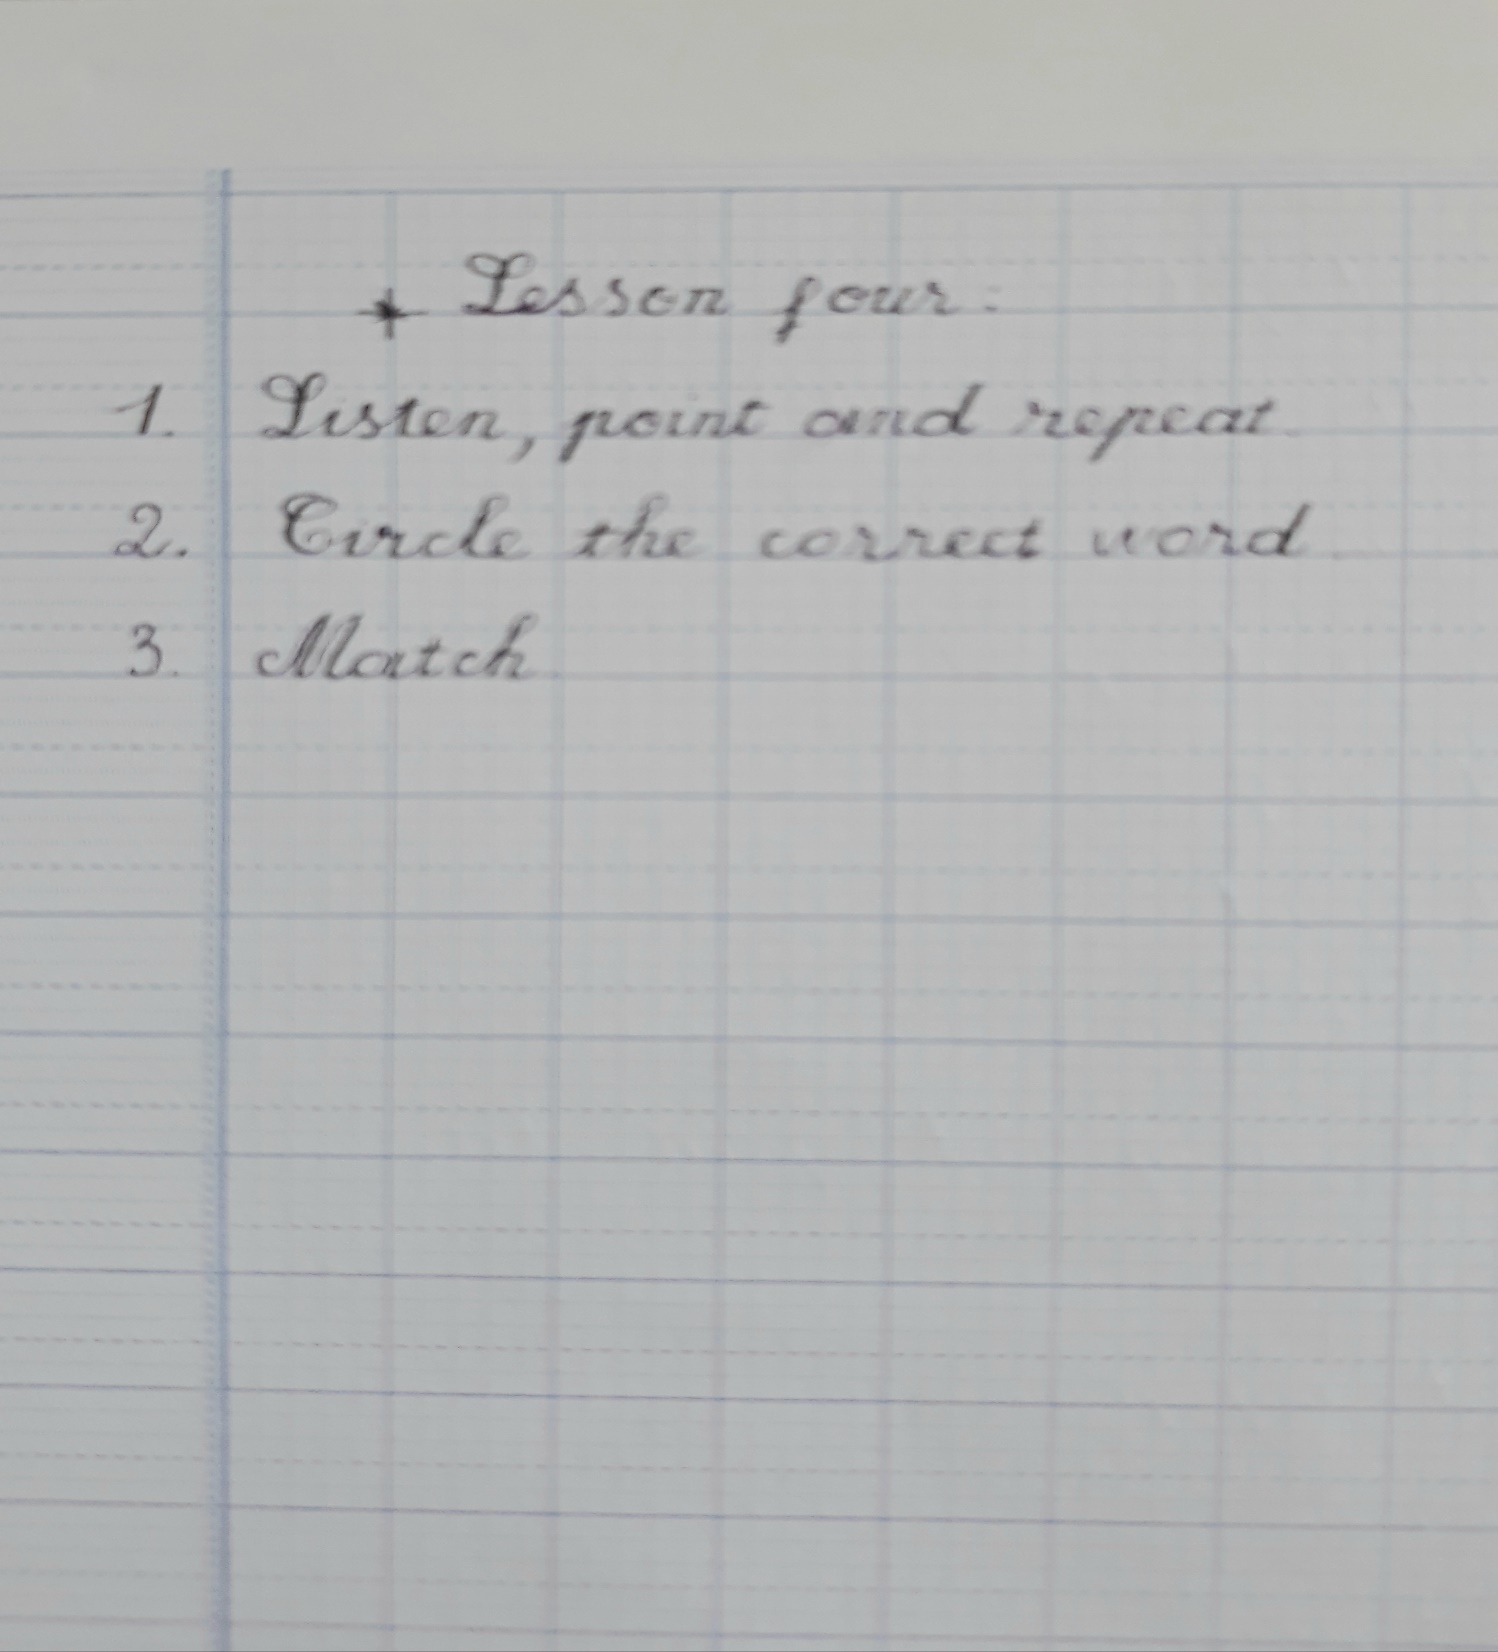 + Lesson four:
1. Listen, point and repeat.
2. Circle the correct word.
3. Match.